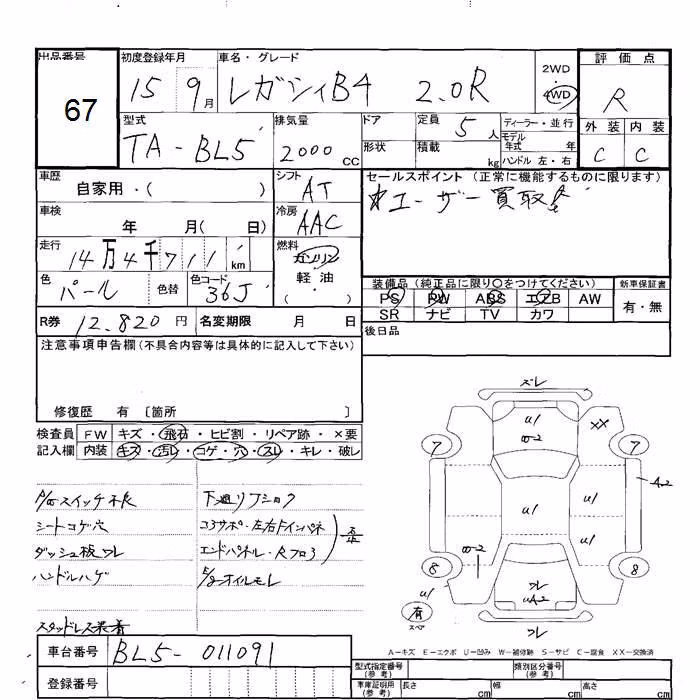 出品番号 初度登録年月 車名・グレード 2WD 評価点
67 15 9月 レガシィB4 2.0R 4WD R
型式 排気量 ドア 定員 5人 ディーラー・並行 外装 内装
TA-BL5 2000cc 形状 積載 kg モデル年式 年 ハンドル 左・右 C C
車歴 シフト セールスポイント (正常に機能するものに限ります)
自家用・( ) AT ユーザー買取
車検 冷房
年 月( 日) AAC
走行 燃料
14万4千711km ガソリン
軽油
( )
色 パール 色替 色コード 36J
装備品 (純正品に限り○をつけてください) 新車保証書
PS PW ABS エアB AW 有・無
SR ナビ TV カワ
R券 12,820円 名変期限 月 日 後日品
注意事項申告欄(不具合内容等は具体的に記入して下さい)
修復歴 有 〔箇所 〕
検査員 FW キズ・飛石・ヒビ割・リペア跡・×要
記入欄 内装 キズ・汚レ・コゲ・穴・スレ・キレ・破レ
P/Wスイッチ不良 下廻リフショク
シートコゲ穴 コアサポ・左右Fインパネ
ダッシュ板ワレ エンドパネル・Rフロア
ハンドルハゲ E/gオイルモレ
スタッドレス装着
ズレ
U1
W-2
XX
7 7
A2
U1
U1
U1
W-2
8 8
U1
ワレ
UA2
有
スペア
ワレ
A-キズ E-エクボ U-凹み W-補修跡 S-サビ C-腐食 XX-交換済
車台番号 BL5-011091
登録番号
型式指定番号 (参考) 類別区分番号 (参考)
車庫証明用 (参考) 長さ cm 幅 cm 高さ cm